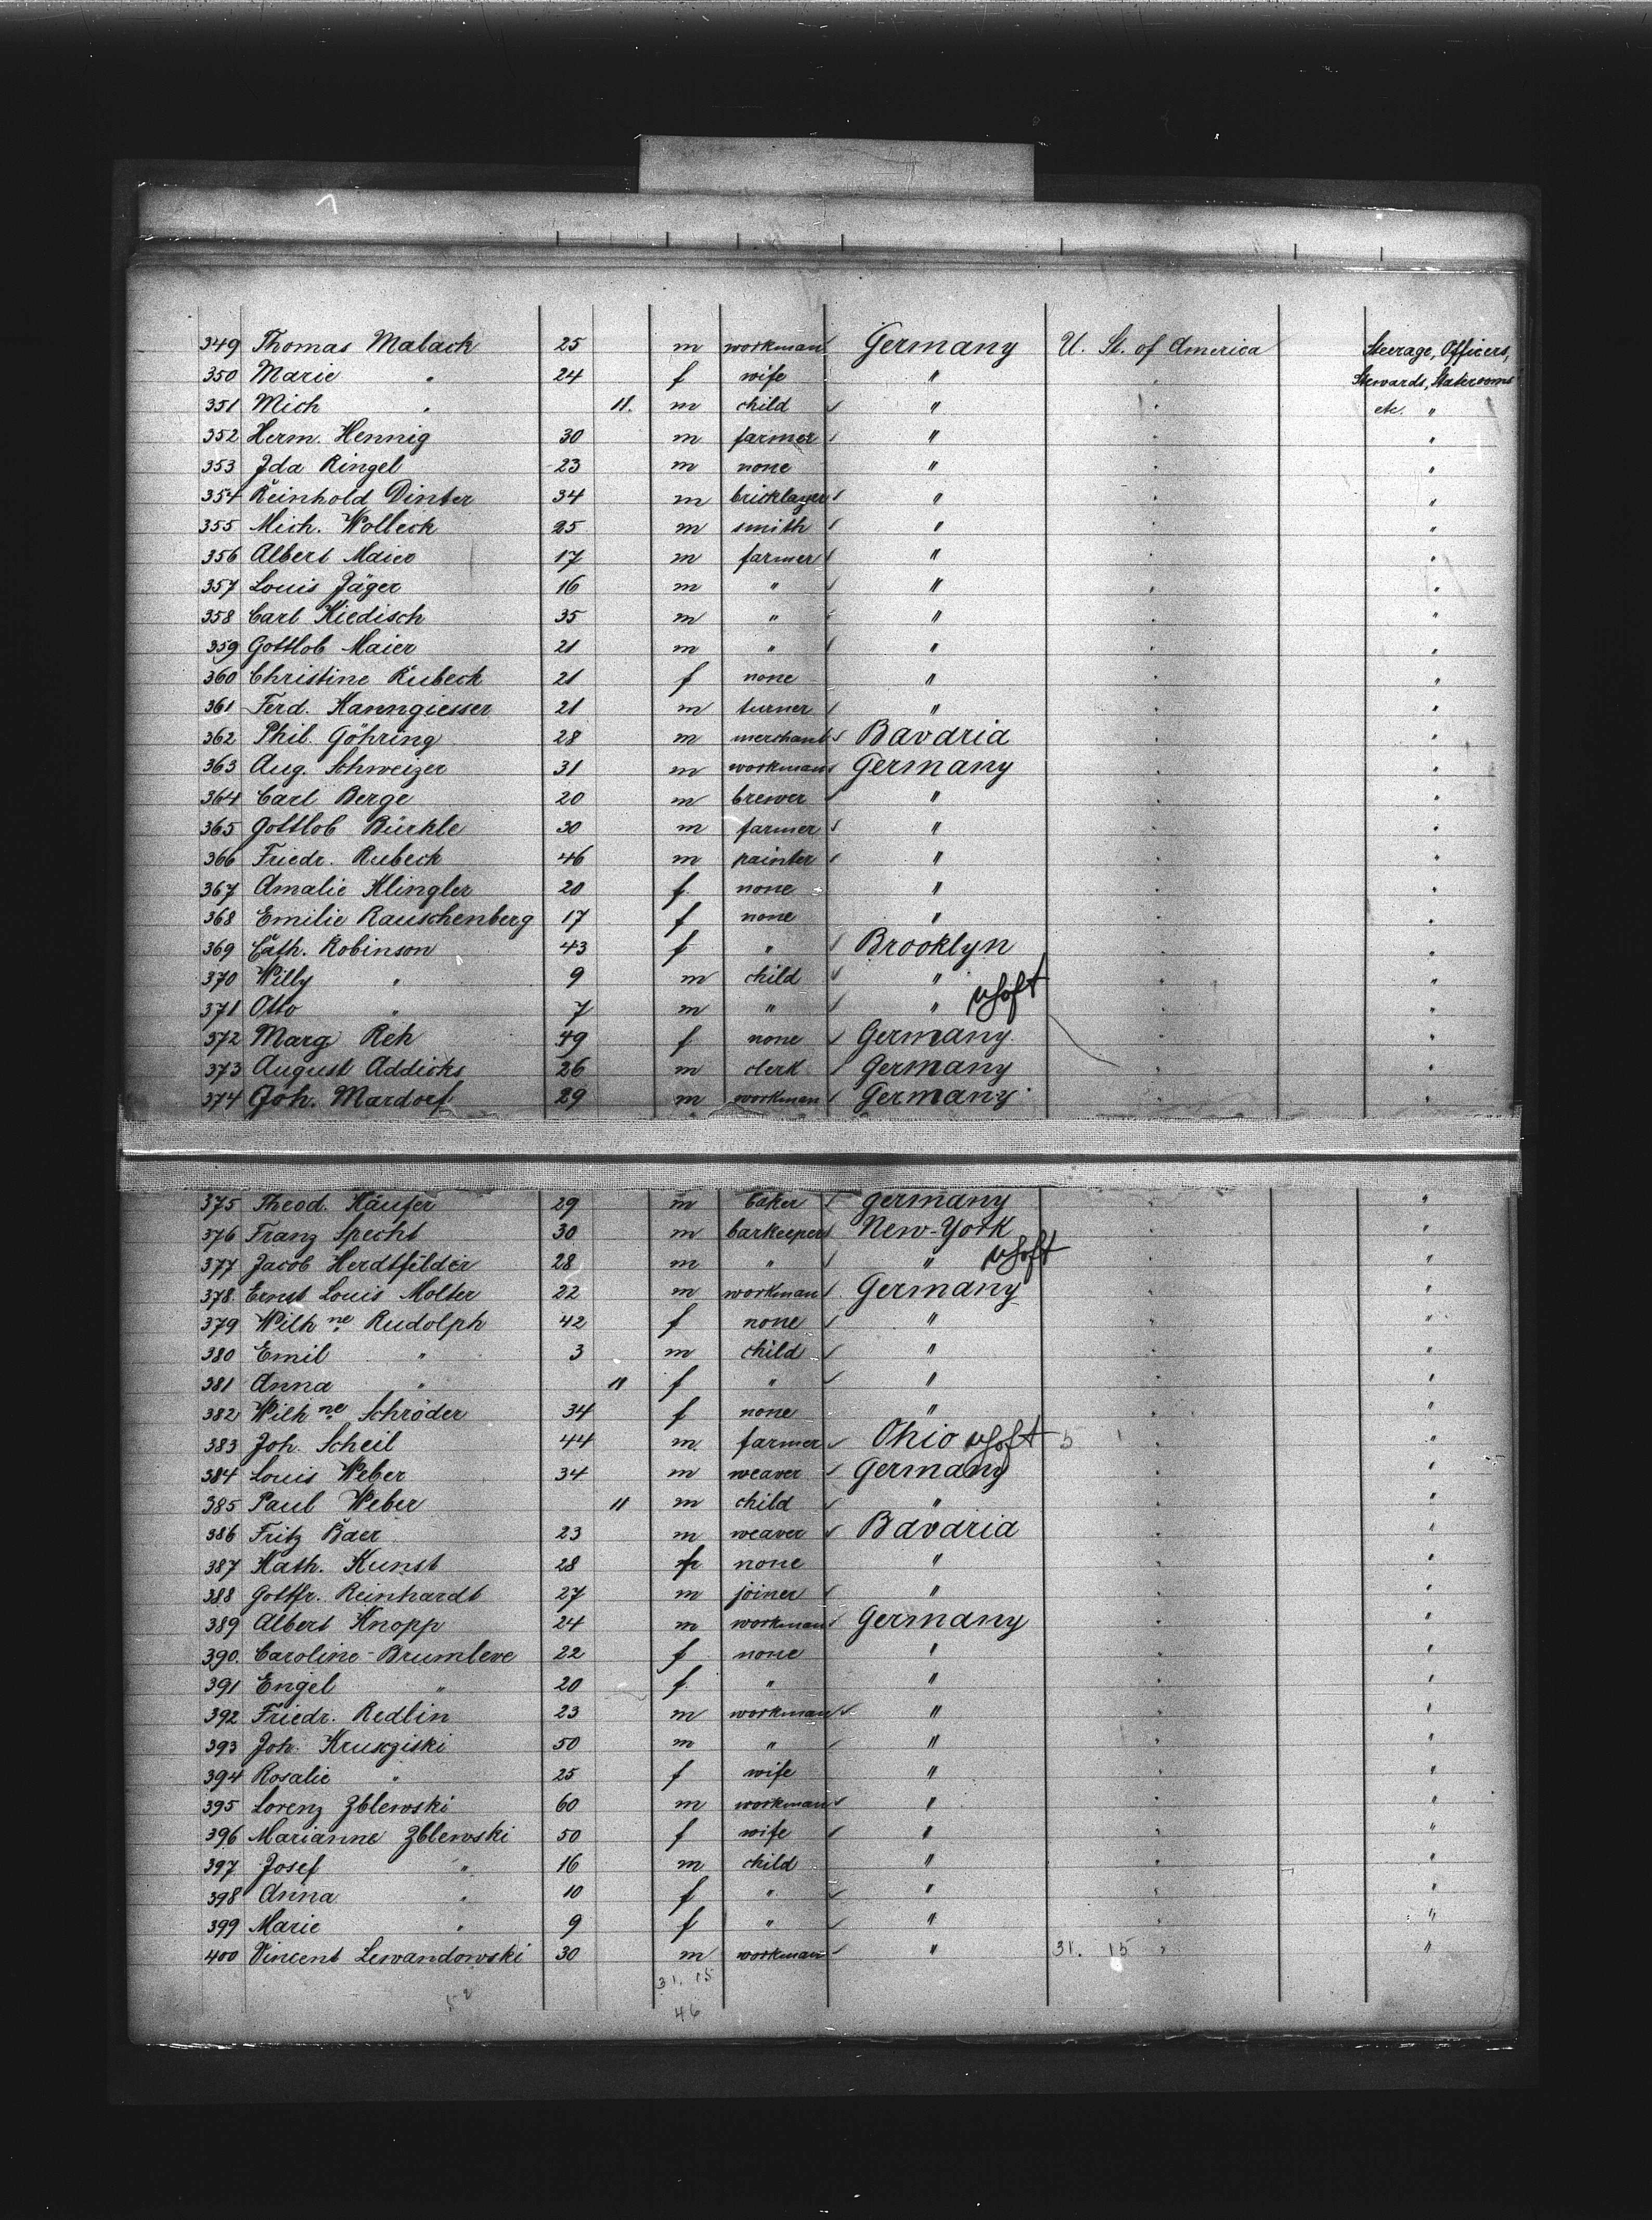 349 Thomas Malack 25 m workman Germany U. St. of America Steerage, Officers,
350 Marie " 24 f wife " " Stewards, Staterooms
351 Mich " 11. m child " " etc. "
352 Herm. Hennig 30 m farmer " " "
353 Ida Ringel 23 m none " " "
354 Reinhold Dinter 34 m bricklayer " " "
355 Mich. Wolleck 25 m smith " " "
356 Albert Maier 17 m farmer " " "
357 Louis Jäger 16 m " " " "
358 Carl Kiedisch 35 m " " " "
359 Gottlob Maier 21 m " " " "
360 Christine Rubeck 21 f none " " "
361 Ferd. Kanngiesser 21 m turner " " "
362 Phil. Göhring 28 m merchant Bavaria " "
363 Aug. Schweizer 31 m workman Germany " "
364 Carl Berge 20 m brewer " " "
365 Gottlob Bürkle 30 m farmer " " "
366 Friedr. Rubeck 46 m painter " " "
367 Amalie Klingler 20 f. none " " "
368 Emilie Rauschenberg 17 f none " " "
369 Cath. Robinson 43 f " Brooklyn " "
370 Willy " 9 m child " " "
371 Otto " 7 m " " " "
372 Marg Reh 49 f none Germany " "
373 August Addicks 26 m clerk Germany " "
374 Joh. Mardorf 29 m workman Germany " "
375 Theod. Käufer 29 m baker Germany " "
376 Franz Specht 30 m barkeeper New-York " "
377 Jacob Herdtfelder 28 m " " " "
378. Ernst Louis Molter 22 m workman Germany " "
379 Wilhne Rudolph 42 f none " " "
380 Emil " 3 m child " " "
381 Anna " 11 f " " " "
382 Wilhne Schröder 34 f none " " "
383 Joh. Scheil 44 m. farmer Ohio " "
384 Louis Weber 34 m weaver Germany " "
385 Paul Weber 11 m child " " "
386 Fritz Baer 23 m weaver Bavaria " "
387 Kath. Kunst 28 f none " " "
388 Gottfr. Reinhardt 27 m joiner " " "
389 Albert Knopp 24 m workman Germany " "
390. Caroline Brumleve 22 f none " " "
391 Engel " 20 f. " " " "
392 Friedr. Redlin 23 m workman " " "
393 Joh. Krusziski 50 m " " " "
394 Rosalie " 25 f wife " " "
395 Lorenz Zblewski 60 m workman " " "
396 Marianne Zblewski 50 f wife " " "
397 Josef " 16 m child " " "
398 Anna " 10 f " " " "
399 Marie " 9 f " " " "
400 Vincent Lewandowski 30 m workman " 31. 15 " "
31. 15
46